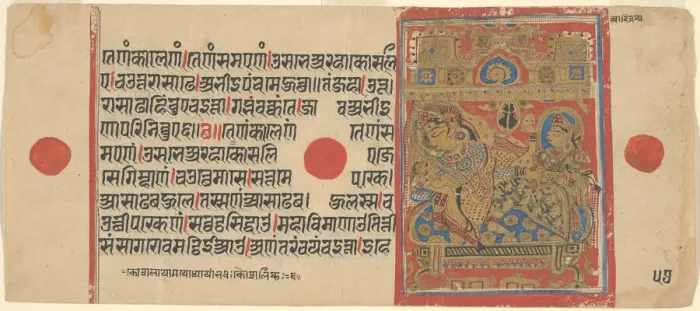 तेणंकालेणं।तेणंसमएणं।उसभेअरहाकोसलि
ए।चउउत्तरासाढे।अभीइपंचमेहोत्था॥तंजहा।उत्त
रासाढाहिंचुएचइत्ता।गब्भंवक्कंते।जा वअभीइ
णापरिनिव्वुए॥३॥तेणंकालेणं तेणंस
मएणं।उसभेअरहाकोसलि एजे
सेगिम्हाणं।चउत्थेमासे।सत्तमे पक्खे।
आसाढबहुले।तस्सणंआसाढब हुलस्स।च
उत्थीपक्खेणं।सव्वट्ठसिद्धाउ।महाविमाणाउतित्ती
संसागरोवमट्ठिईआउ।अणंतरंचयंचइत्ता।इहेव
आदिजन्म
५७